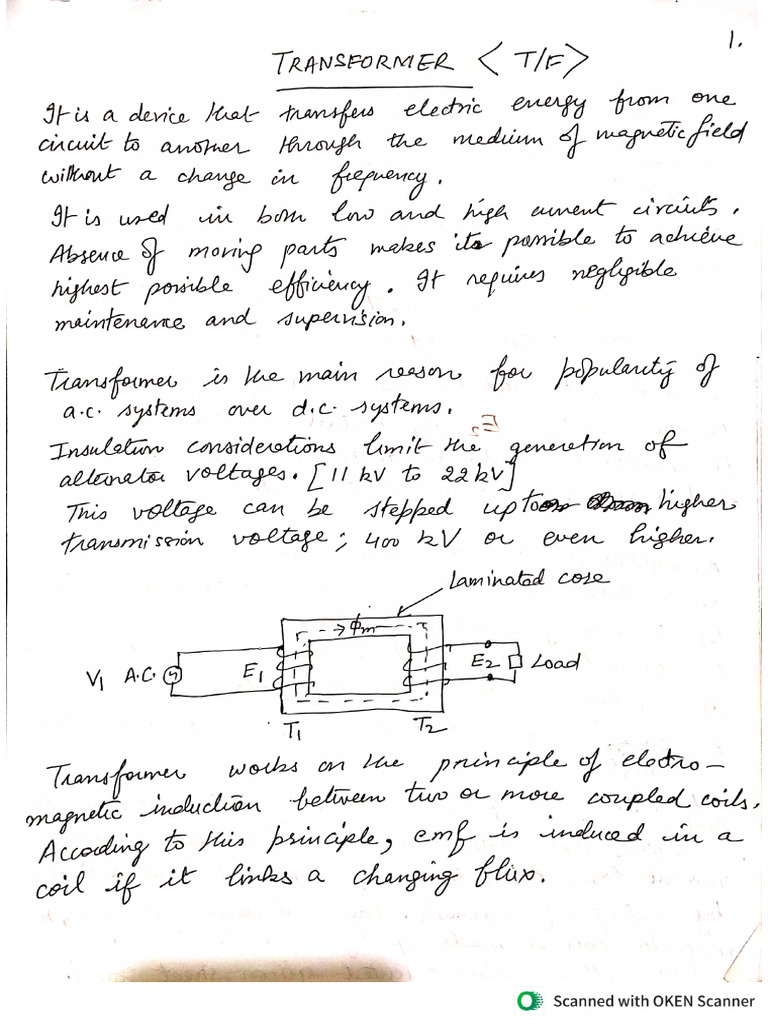 1.
TRANSFORMER < T/F >
It is a device that transfers electric energy from one
circuit to another through the medium of magnetic field
without a change in frequency.
It is used in both low and high current circuits.
Absence of moving parts makes it possible to achieve
highest possible efficiency. It requires negligible
maintenance and supervision.
Transformer is the main reason for popularity of
a.c. systems over d.c. systems.
Insulation considerations limit the generation of
alternator voltages. [11 kV to 22 kV]
This voltage can be stepped up to higher
transmission voltage; 400 kV or even higher.
Laminated core
→ ϕm
V1 A.C. E1 E2 Load
T1 T2
Transformer works on the principle of electro-
magnetic induction between two or more coupled coils.
According to this principle, emf is induced in a
coil if it links a changing flux.
Scanned with OKEN Scanner